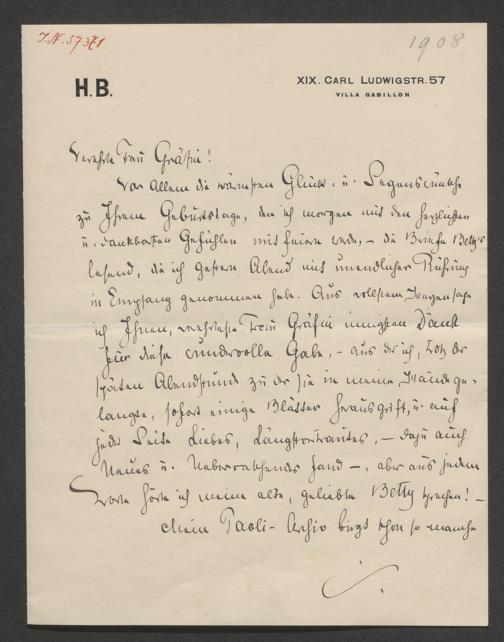 J.N. 57371
1908
H.B.
XIX. CARL LUDWIGSTR. 57
VILLA GABILLON
Verehrte Frau Gräfin!
Vor Allem die wärmsten Glück- u. Segenswünsche
zu Ihrem Geburtstage, den ich morgen mit den herzlichsten
u. dankbarsten Gefühlen mit feiern werde, – die Briefe Betty's
lesend, die ich gestern Abend mit unendlicher Rührung
in Empfang genommen habe. Aus vollstem Herzen sage
ich Ihnen, verehrteste Frau Gräfin innigsten Dank
für diese wundervolle Gabe, – aus der ich, trotz der
späten Abendstunde zu der sie in meine Hände ge-
langte, sofort einige Blätter herausgriff, u. auf
jeder Seite Liebes, Längstvertrautes, – dazu auch
Neues u. Ueberraschendes fand –, aber aus jedem
Worte hörte ich meine alte, geliebte Betty sprechen! –
Mein Paoli-Archiv birgt schon so manche